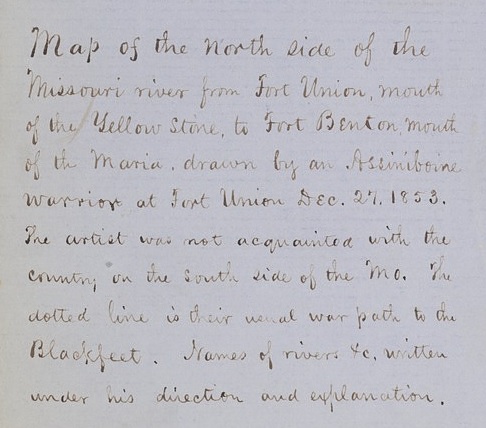 Map of the north side of the
Missouri river from Fort Union, mouth
of the Yellow Stone, to Fort Benton, mouth
of th Maria. drawn by an Assiniboine
warrior at Fort Union Dec. 27. 1853.
The artist was not acquainted with the
country on the south side of the Mo. The
dotted line is their usual war path to the
Blackfeet. Names of rivers &c. written
under his direction and explanation.